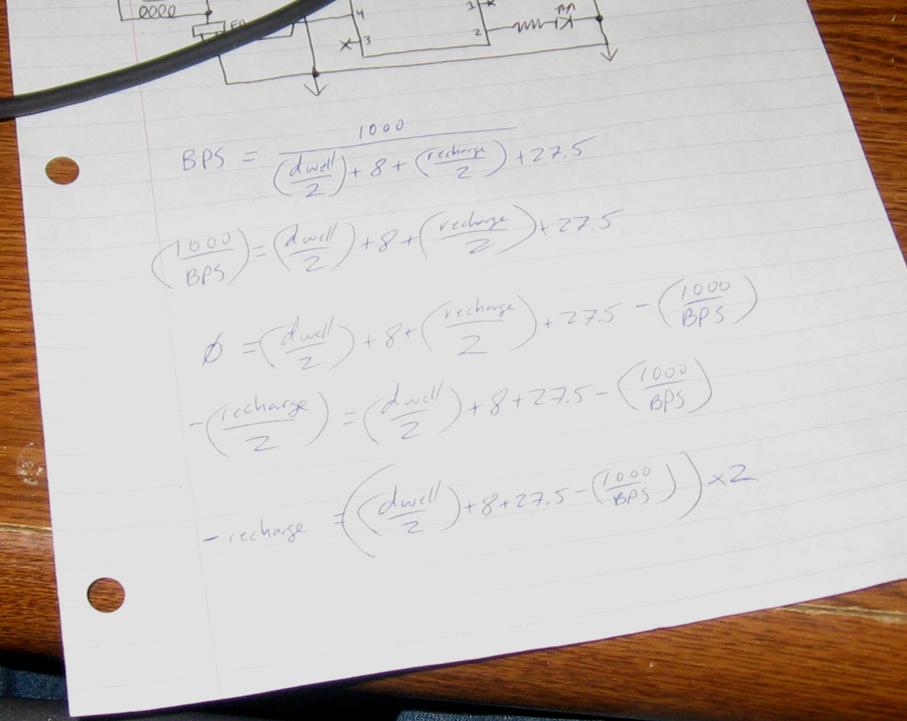 4 1
3 2
BPS = 1000 / (dwell/2) + 8 + (recharge/2) + 27.5
(1000/BPS) = (dwell/2) + 8 + (recharge/2) + 27.5
Ø = (dwell/2) + 8 + (recharge/2) + 27.5 - (1000/BPS)
-(recharge/2) = (dwell/2) + 8 + 27.5 - (1000/BPS)
- recharge = ((dwell/2) + 8 + 27.5 - (1000/BPS)) × 2